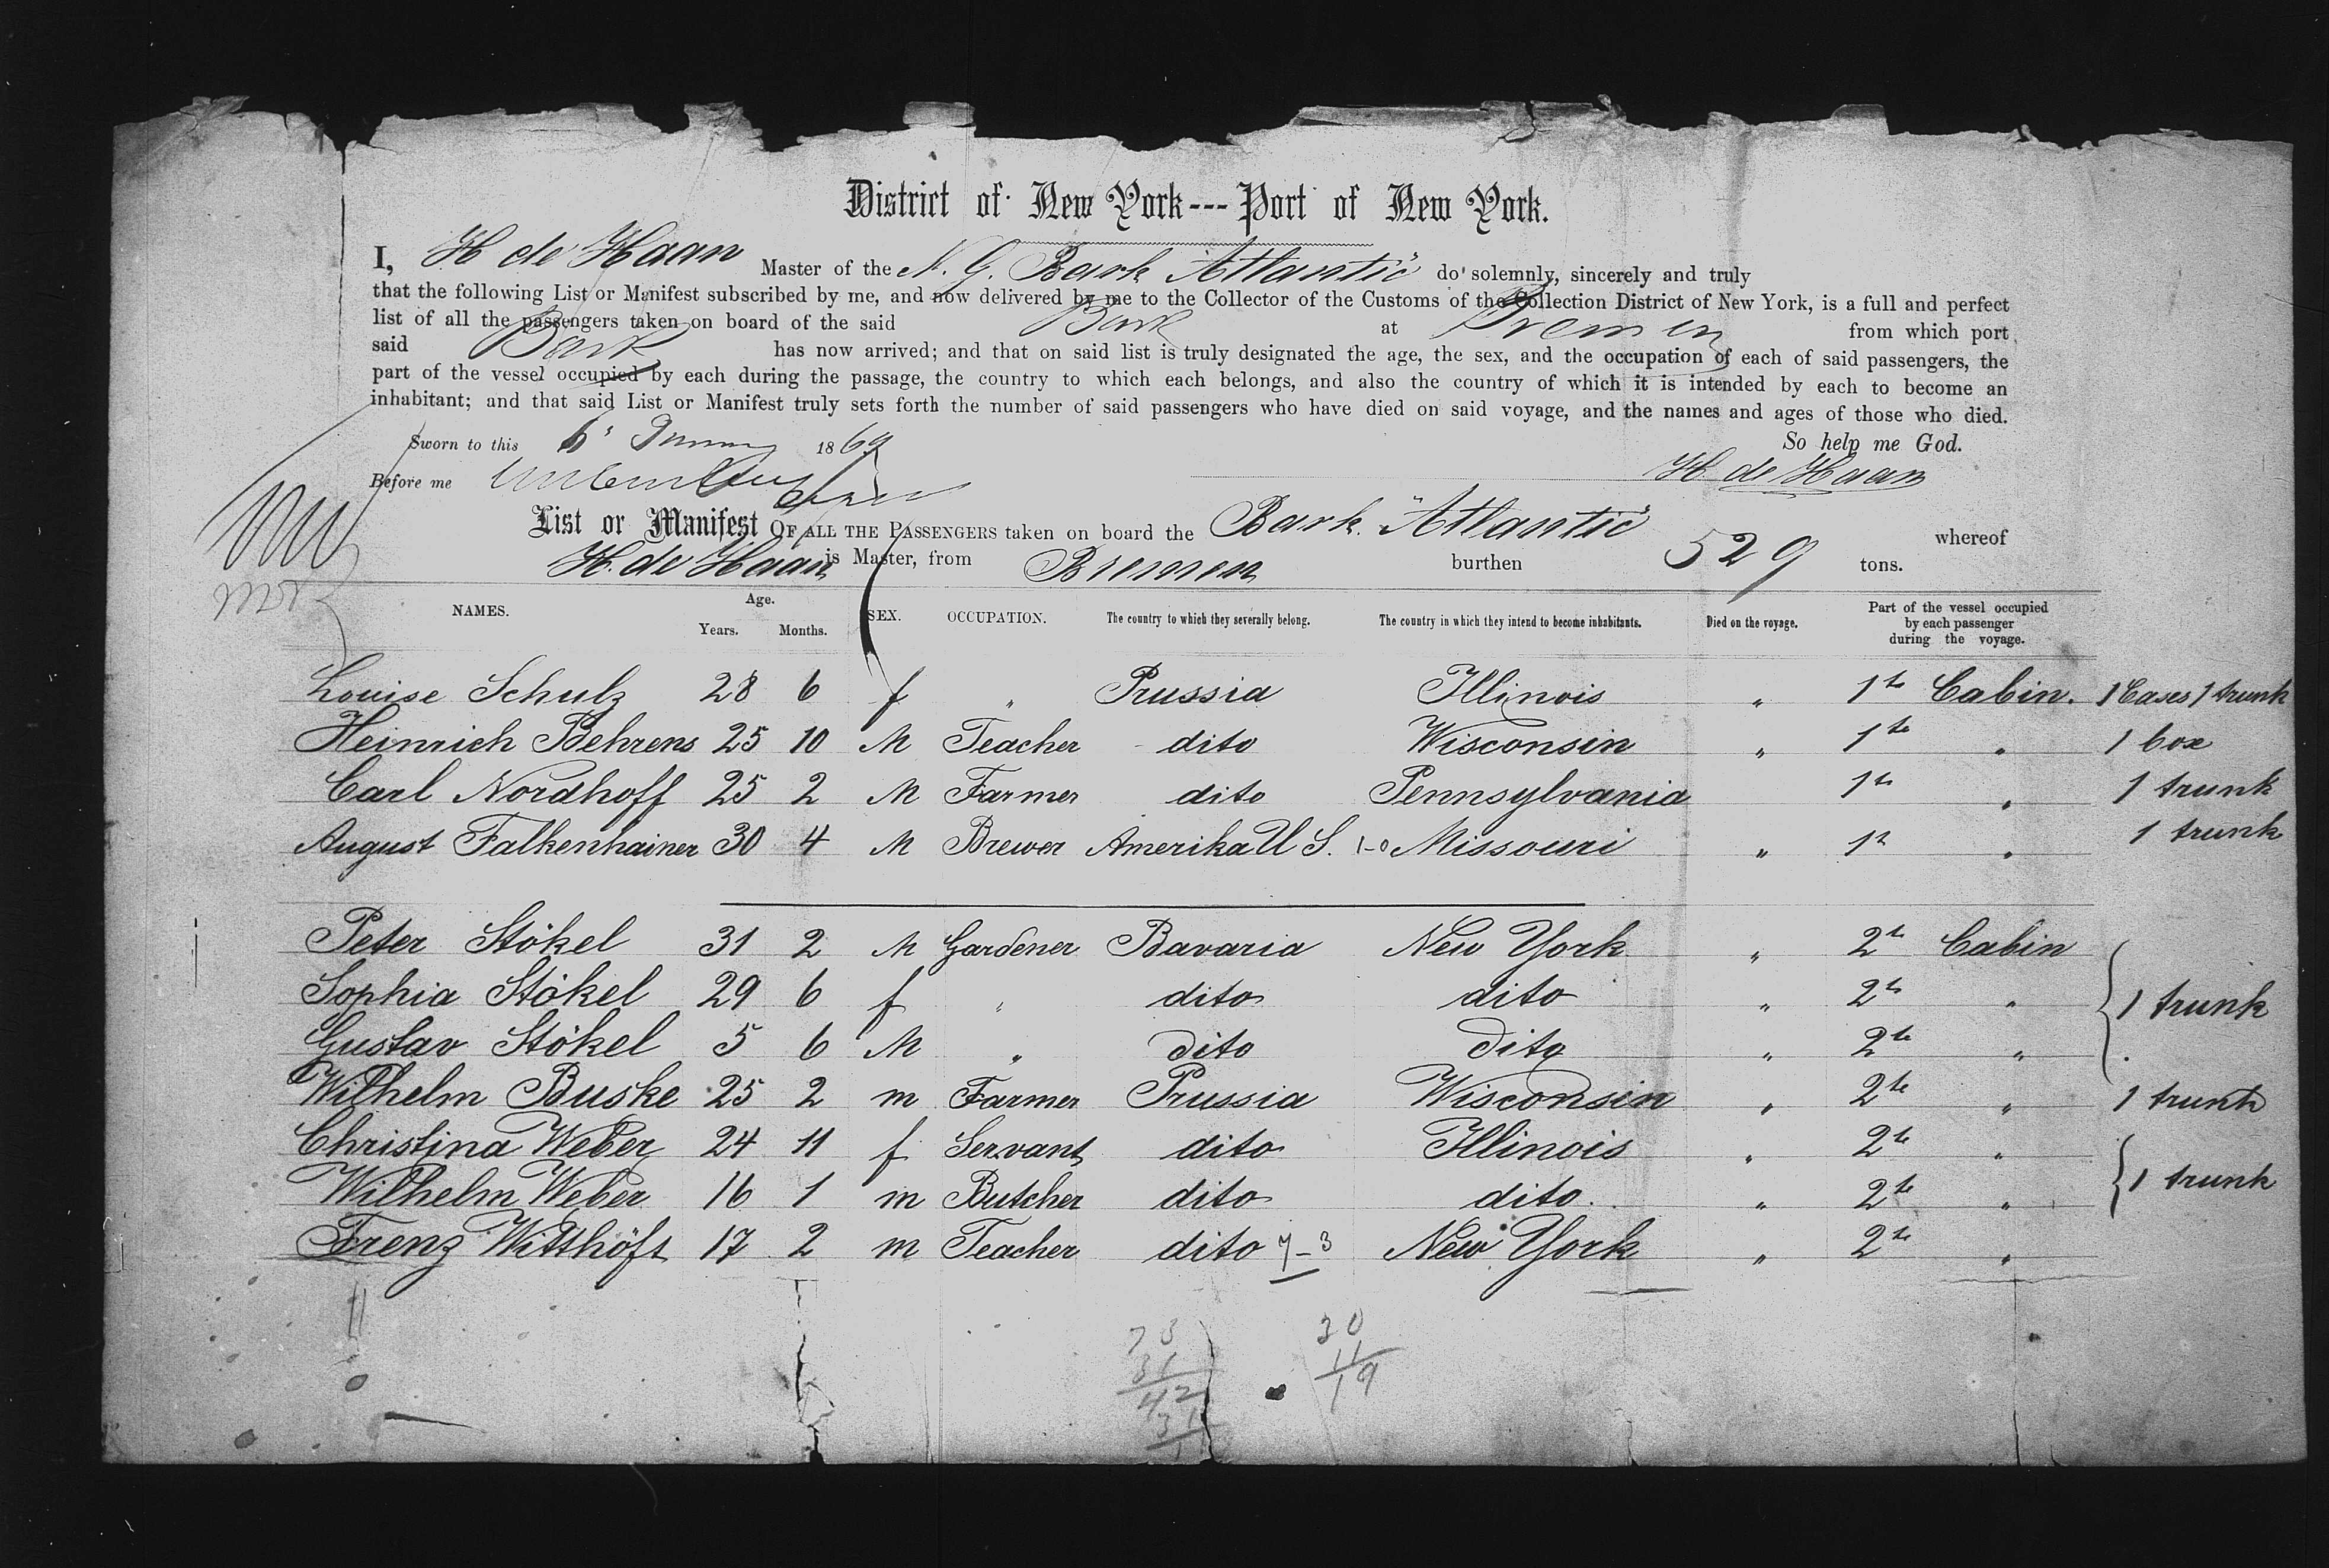 District of New York---Port of New York.
I, H de Haan Master of the N. G. Bark "Atlantic" do solemnly, sincerely and truly
that the following List or Manifest subscribed by me, and now delivered by me to the Collector of the Customs of the Collection District of New York, is a full and perfect
list of all the passengers taken on board of the said Bark at Bremen from which port
said Bark has now arrived; and that on said list is truly designated the age, the sex, and the occupation of each of said passengers, the
part of the vessel occupied by each during the passage, the country to which each belongs, and also the country of which it is intended by each to become an
inhabitant; and that said List or Manifest truly sets forth the number of said passengers who have died on said voyage, and the names and ages of those who died.
Sworn to this 6' 1869 So help me God.
Before me H. de Haan
List or Manifest OF ALL THE PASSENGERS taken on board the Bark. "Atlantic" whereof
H. de Haan is Master, from Bremen burthen 529 tons.
NAMES. Age. Years. Months. SEX. OCCUPATION. The country to which they severally belong. The country in which they intend to become inhabitants. Died on the voyage. Part of the vessel occupied by each passenger during the voyage.
Louise Schulz 28 6 f " Prussia Illinois " 1te Cabin. 1 Cases 1 trunk
Heinrich Behrens 25 10 M Teacher dito Wisconsin " 1te " 1 box
Carl Nordhoff 25 2 M Farmer dito Pennsylvania 1te " 1 trunk
August Falkenhainer 30 4 M Brewer Amerika U S. 1-0 Missouri " 1te " 1 trunk
Peter Stökel 31 2 M Gardener Bavaria New York " 2te Cabin
Sophia Stökel 29 6 f " dito dito " 2te " 1 trunk
Gustav Stökel 5 6 M " dito dito " 2te "
Wilhelm Buske 25 2 m Farmer Prussia Wisconsin " 2te " 1 trunk
Christina Weber 24 11 f Servant dito Illinois " 2te "
Wilhelm Weber 16 1 m Butcher dito dito. " 2te " 1 trunk
Frenz Witthöft 17 2 m Teacher dito 7-3 New York " 2te "
11
73 30
31 11
42 19
31
1